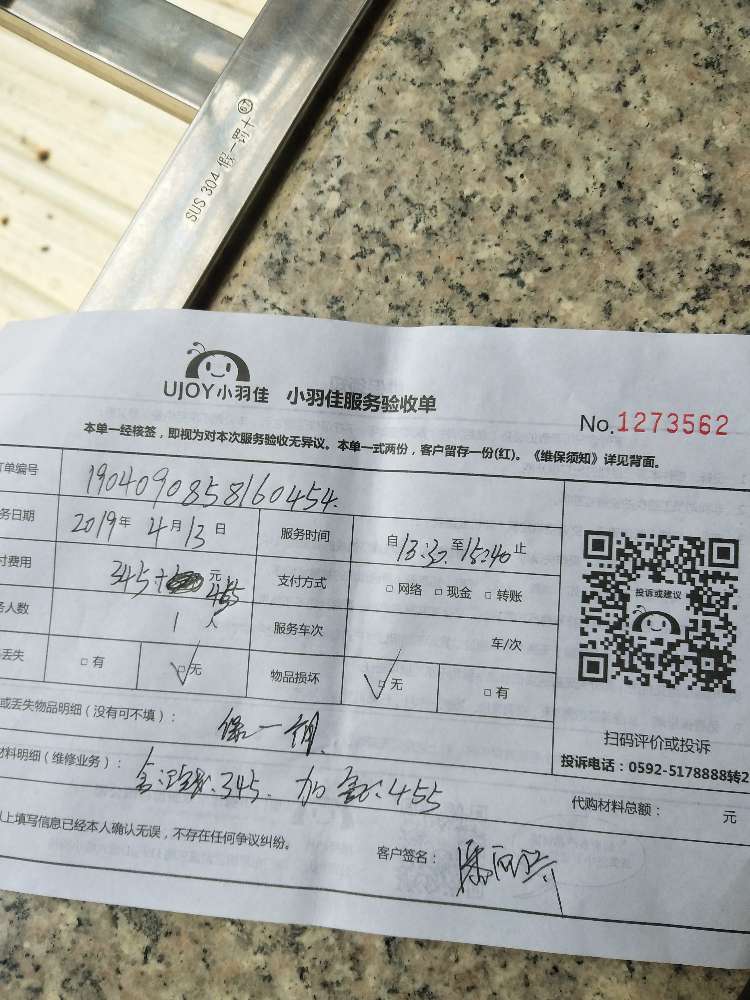 SUS 304 假一罚十
UJOY小羽佳 小羽佳服务验收单
No.1273562
本单一经核签，即视为对本次服务验收无异议。本单一式两份，客户留存一份(红)。《维保须知》详见背面。
订单编号 1904090858160454
务日期 2019年 4月13日 服务时间 自13:30至15:40止
付费用 345+455元 支付方式 □网络 □现金 □转账
务人数 1人 服务车次 车/次
丢失 □有 □无 物品损坏 □无 □有
投诉或建议
或丢失物品明细（没有可不填）：
扫码评价或投诉
投诉电话：0592-5178888转2
材料明细（维修业务）： 345. 加 455
代购材料总额： 元
以上填写信息已经本人确认无误，不存在任何争议纠纷。
客户签名：